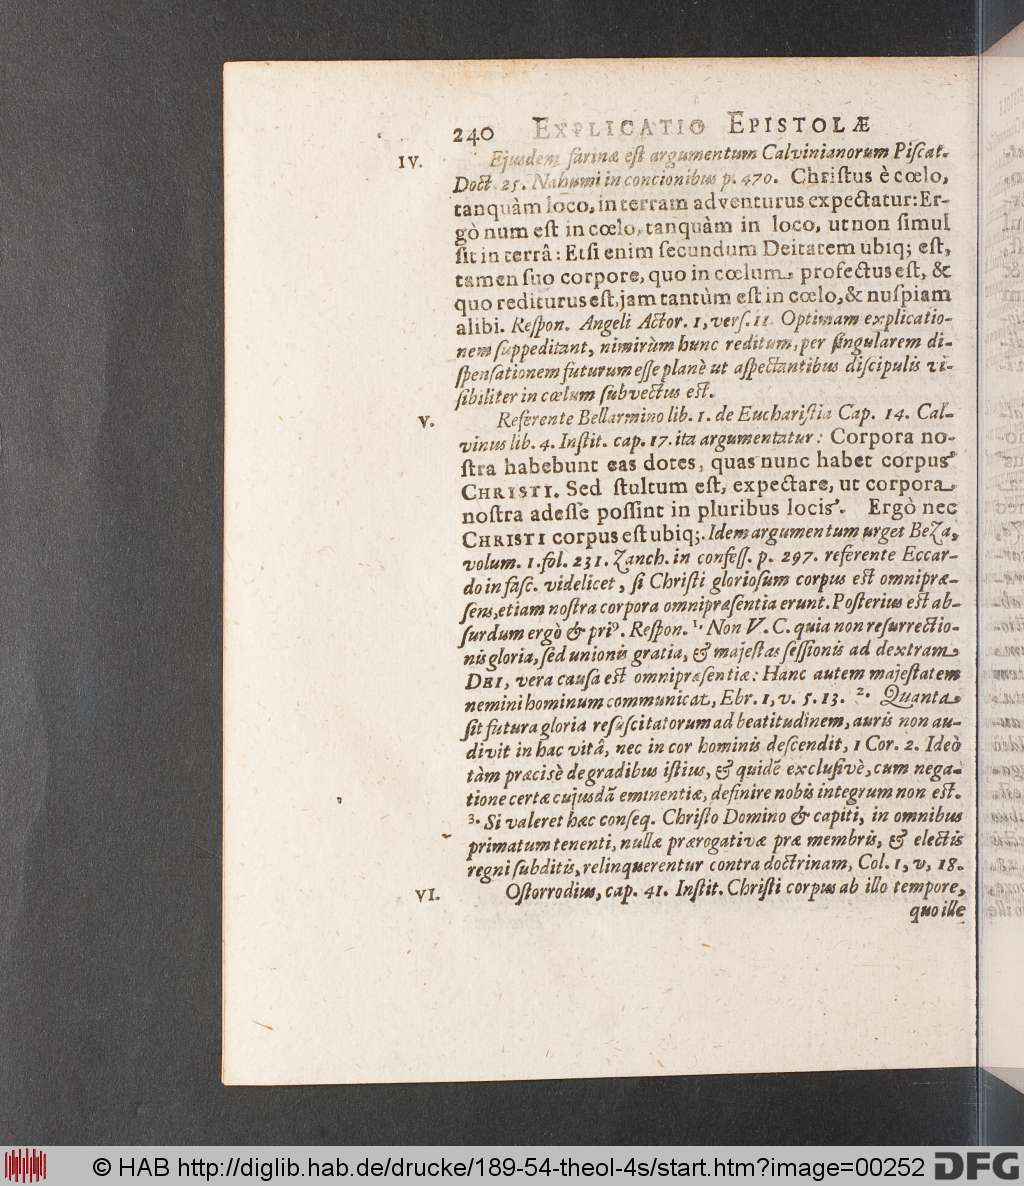 240 EXPLICATIO EPISTOLÆ
IV. Ejusdem farinæ est argumentum Calvinianorum Piſcat.
Doct. 25. Nahumi in concionibus p. 470. Chriſtus è cœlo,
tanquàm loco, in terram adventurus expectatur: Er-
gò num eſt in cœlo, tanquàm in loco, ut non ſimul
ſit in terrâ: Etſi enim ſecundum Deitatem ubiq; eſt,
tamen ſuo corpore, quo in cœlum profectus eſt, &
quo rediturus eſt, jam tantùm eſt in cœlo, & nuſpiam
alibi. Reſpon. Angeli Actor. 1, verſ. 11. Optimam explicatio-
nem ſuppeditant, nimirùm hunc reditum, per ſingularem di-
ſpenſationem futurum eſſe planè ut aſpectantibus diſcipulis vi-
ſibiliter in cœlum ſubvectus eſt.
V. Referente Bellarmino lib. 1. de Euchariſtia Cap. 14. Cal-
vinus lib. 4. Inſtit. cap. 17. ita argumentatur: Corpora no-
ſtra habebunt eas dotes, quas nunc habet corpus
CHRISTI. Sed ſtultum eſt, expectare, ut corpora
noſtra adeſſe poſſint in pluribus locis. Ergò nec
CHRISTI corpus eſt ubiq;. Idem argumentum urget BeZa,
volum. 1. fol. 231. Zanch. in confeſſ. p. 297. referente Eccar-
do in faſc. videlicet, ſi Chriſti glorioſum corpus eſt omnipræ-
ſens, etiam noſtra corpora omnipræſentia erunt. Poſterius eſt ab-
ſurdum ergò & pri⁹. Reſpon. 1. Non V. C. quia non reſurrectio-
nis gloria, ſed unionis gratia, & majeſtas ſeſſionis ad dextram
DEI, vera cauſa eſt omnipræſentiæ: Hanc autem majeſtatem
nemini hominum communicat, Ebr. 1, v. 5. 13. 2. Quanta
ſit futura gloria reſuſcitatorum ad beatitudinem, auris non au-
divit in hac vitâ, nec in cor hominis deſcendit, 1 Cor. 2. Ideò
tàm præcisè de gradibus iſtius, & quidẽ excluſivè, cum nega-
tione certæ cujusdã eminentiæ, definire nobis integrum non eſt.
3. Si valeret hæc conſeq. Chriſto Domino & capiti, in omnibus
primatum tenenti, nullæ prærogativæ præ membris, & electis
regni ſubditis, relinquerentur contra doctrinam, Col. 1, v, 18.
VI. Oſtorrodius, cap. 41. Inſtit. Chriſti corpus ab illo tempore,
quo ille
© HAB http://diglib.hab.de/drucke/189-54-theol-4s/start.htm?image=00252 DFG